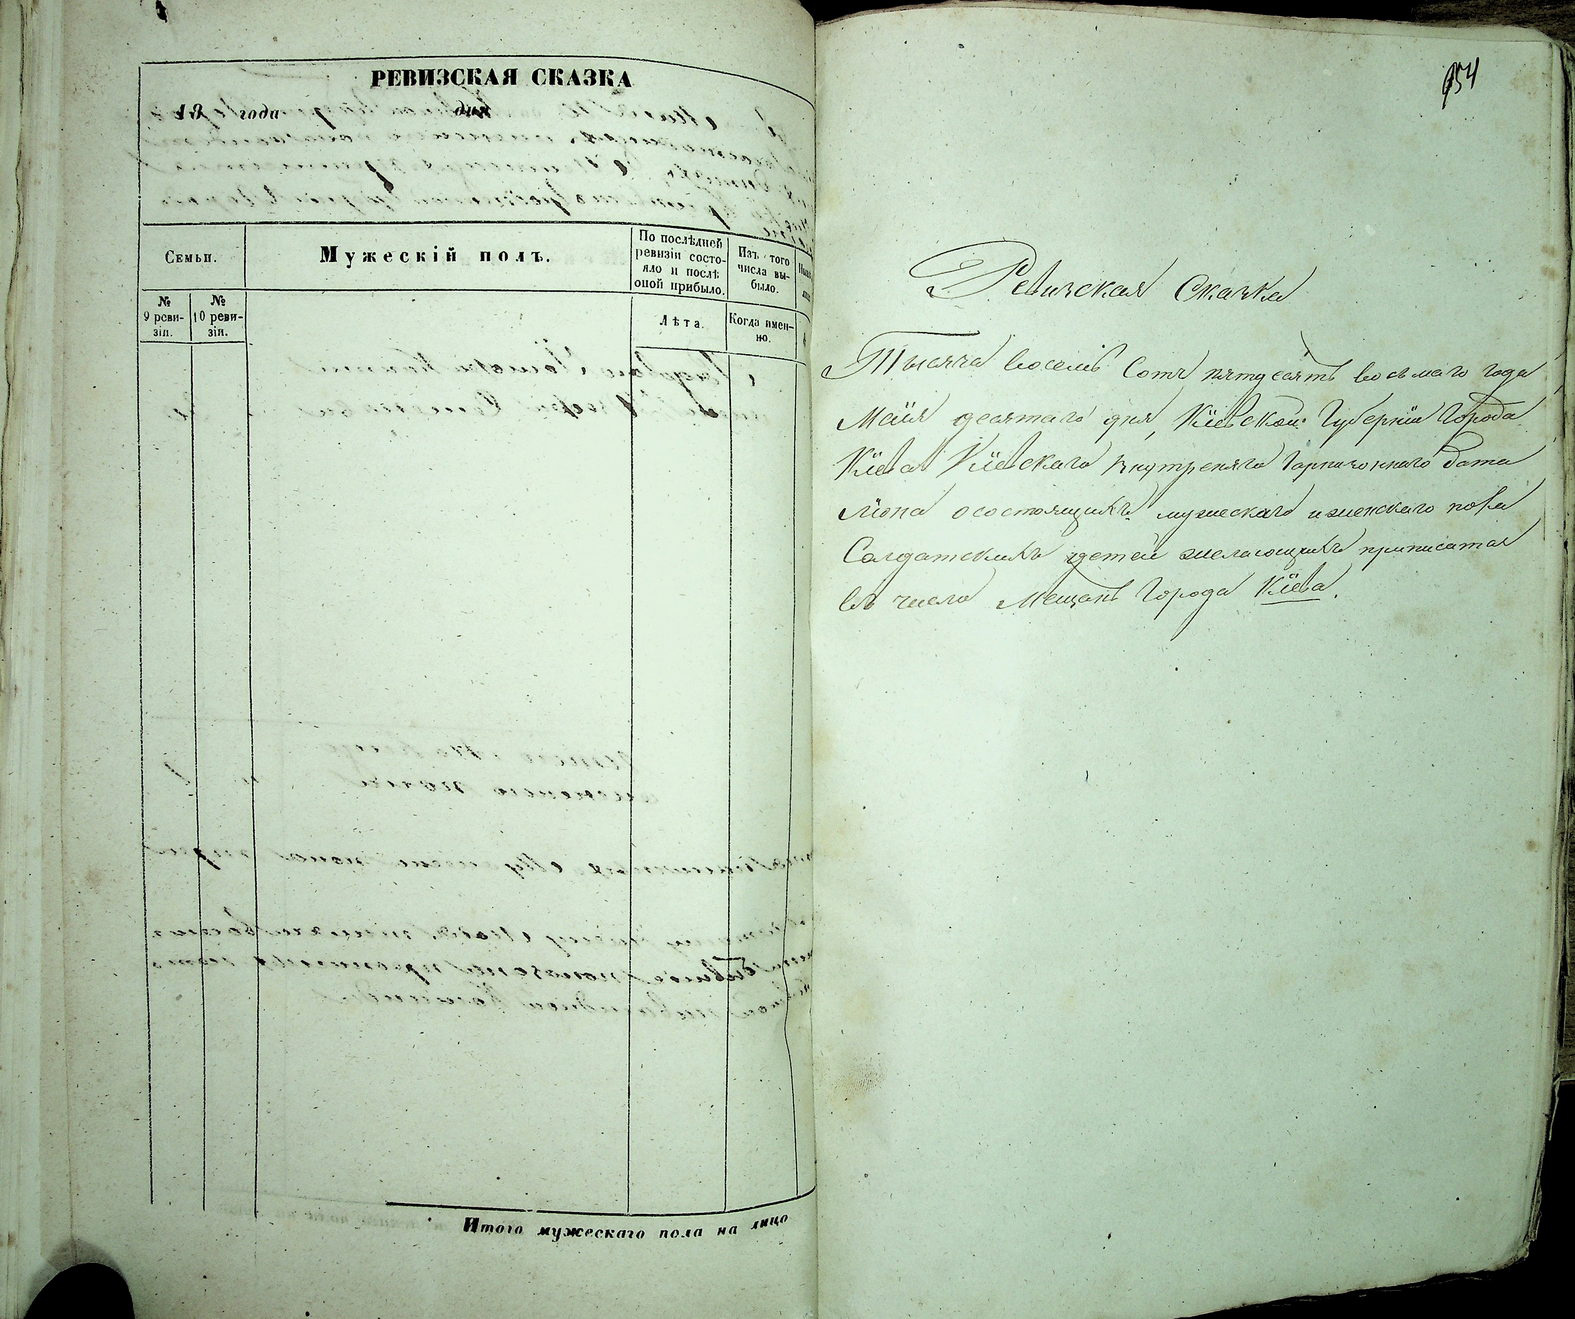 РЕВИЗСКАЯ СКАЗКА
18 года дня
Семьи.
Мужескій полъ.
По послѣдней
ревизіи состо-
яло и послѣ
оной прибыло.
Изъ того
числа вы-
было.
№
9 реви-
зіи.
№
10 реви-
зіи.
Лѣта.
Когда имен-
но.
Итого мужескаго пола на лицо
954
Ревизская Сказка
Тысяча восемь Сотъ пятдесятъ восьмаго года
Маія десятаго дня, Кіевской Губерніи Города
Кіева Кіевскаго внутреняго Гарнизоннаго Бата
ліона осостоящихъ мужескаго и женскаго пола
Солдатскихъ детей желающихъ приписатся
въ число Мещанъ Города Кіева.